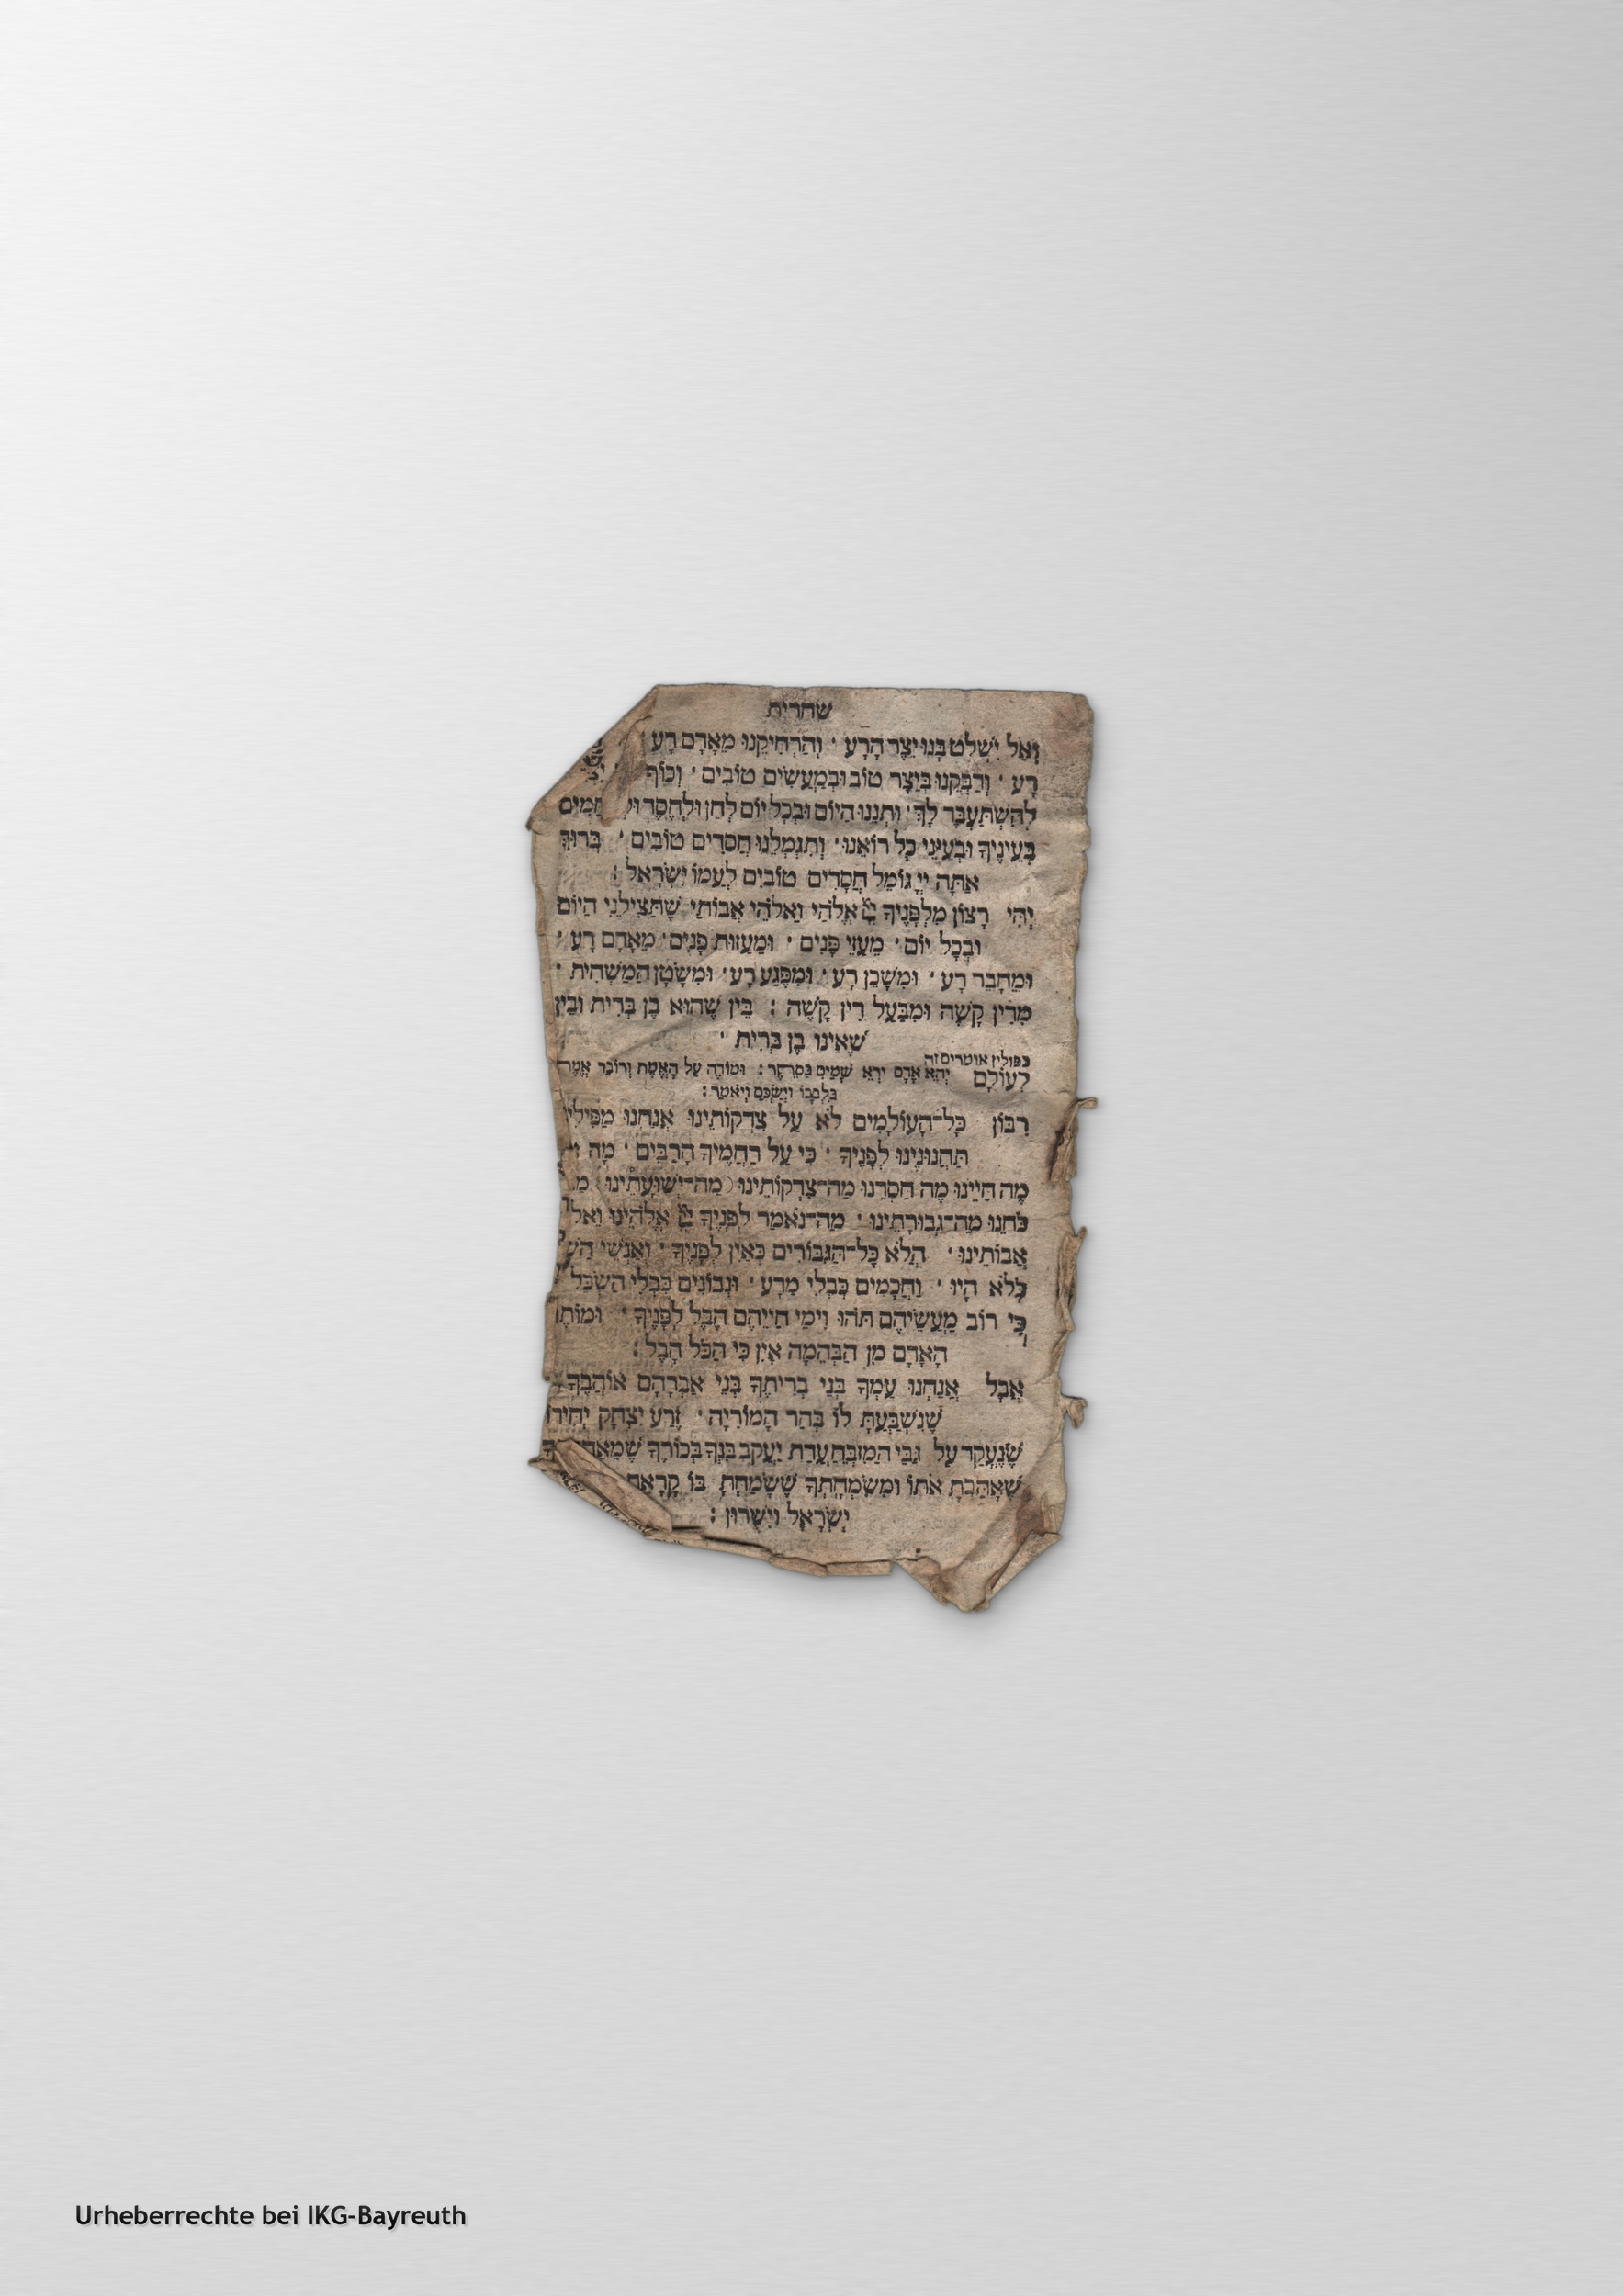 שחרית
וְאַל יִשְׁלט בָּנוּ יֵצֶר הָרָע · וְהַרְחִיקֵנוּ מֵאָדָם רָע
רָע · וְדַבְּקֵנוּ בְּיֵצֶר טוֹב וּבְמַעֲשִׂים טוֹבִים · וְכוֹף
לְהִשְׁתַּעְבֶּד לָךְ · וּתְנֵנוּ הַיּוֹם וּבְכָל יוֹם לְחֵן וּלְחֶסֶד
בְּעֵינֶיךָ וּבְעֵינֵי כָל רוֹאֵנוּ · וְתִגְמְלֵנוּ חֲסָדִים טוֹבִים · בָּרוּךְ
אַתָּה יְיָ גּוֹמֵל חֲסָדִים טוֹבִים לְעַמּוֹ יִשְׂרָאֵל :
יְהִי רָצוֹן מִלְּפָנֶיךָ יְיָ אֱלֹהַי וֵאלֹהֵי אֲבוֹתַי שֶׁתַּצִּילֵנִי הַיּוֹם
וּבְכָל יוֹם · מֵעַזֵּי פָּנִים · וּמֵעַזּוּת פָּנִים · מֵאָדָם רָע ·
וּמֵחָבֵר רָע · וּמִשָּׁכֵן רָע · וּמִפֶּגַע רָע · וּמִשָּׂטָן הַמַּשְׁחִית ·
מִדִּין קָשֶׁה וּמִבַּעַל דִּין קָשֶׁה : בֵּין שֶׁהוּא בֶן בְּרִית וּבֵין
שֶׁאֵינוֹ בֶן בְּרִית ·
בפולין אומרים זה
לְעוֹלָם יְהֵא אָדָם יְרֵא שָׁמַיִם בַּסֵּתֶר : וּמוֹדֶה עַל הָאֱמֶת וְדוֹבֵר אֱמֶת
בִּלְבָבוֹ וְיַשְׁכֵּם וְיֹאמַר :
רִבּוֹן כָּל־הָעוֹלָמִים לֹא עַל צִדְקוֹתֵינוּ אֲנַחְנוּ
תַּחֲנוּנֵינוּ לְפָנֶיךָ · כִּי עַל רַחֲמֶיךָ הָרַבִּים · מָה
מֶה חַיֵּינוּ מֶה חַסְדֵּנוּ מַה־צִּדְקוֹתֵינוּ (מַה־יְּשׁוּעָתֵינוּ)
כֹּחֵנוּ מַה־גְּבוּרָתֵינוּ · מַה־נֹּאמַר לְפָנֶיךָ יְיָ אֱלֹהֵינוּ
אֲבוֹתֵינוּ · הֲלֹא כָּל־הַגִּבּוֹרִים כְּאַיִן לְפָנֶיךָ · וְאַנְשֵׁי
כְּלֹא הָיוּ · וַחֲכָמִים כִּבְלִי מַדָּע · וּנְבוֹנִים כִּבְלִי הַשְׂכֵּל
כִּי רוֹב מַעֲשֵׂיהֶם תֹּהוּ וִימֵי חַיֵּיהֶם הֶבֶל לְפָנֶיךָ · וּמוֹתַר
הָאָדָם מִן הַבְּהֵמָה אָיִן כִּי הַכֹּל הָבֶל :
אֲבָל אֲנַחְנוּ עַמְּךָ בְּנֵי בְרִיתֶךָ בְּנֵי אַבְרָהָם אוֹהַבְךָ
שֶׁנִּשְׁבַּעְתָּ לּוֹ בְּהַר הַמּוֹרִיָּה · זֶרַע יִצְחָק יְחִידוֹ
שֶׁנֶּעֱקַד עַל גַּבֵּי הַמִּזְבֵּחַ עֲדַת יַעֲקֹב בִּנְךָ בְּכוֹרֶךָ
שֶׁאָהַבְתָּ אֹתוֹ וּמִשִּׂמְחָתְךָ שֶׁשָּׂמַחְתָּ בּוֹ קָרָאתָ
יִשְׂרָאֵל וִישֻׁרוּן :
Urheberrechte bei IKG-Bayreuth